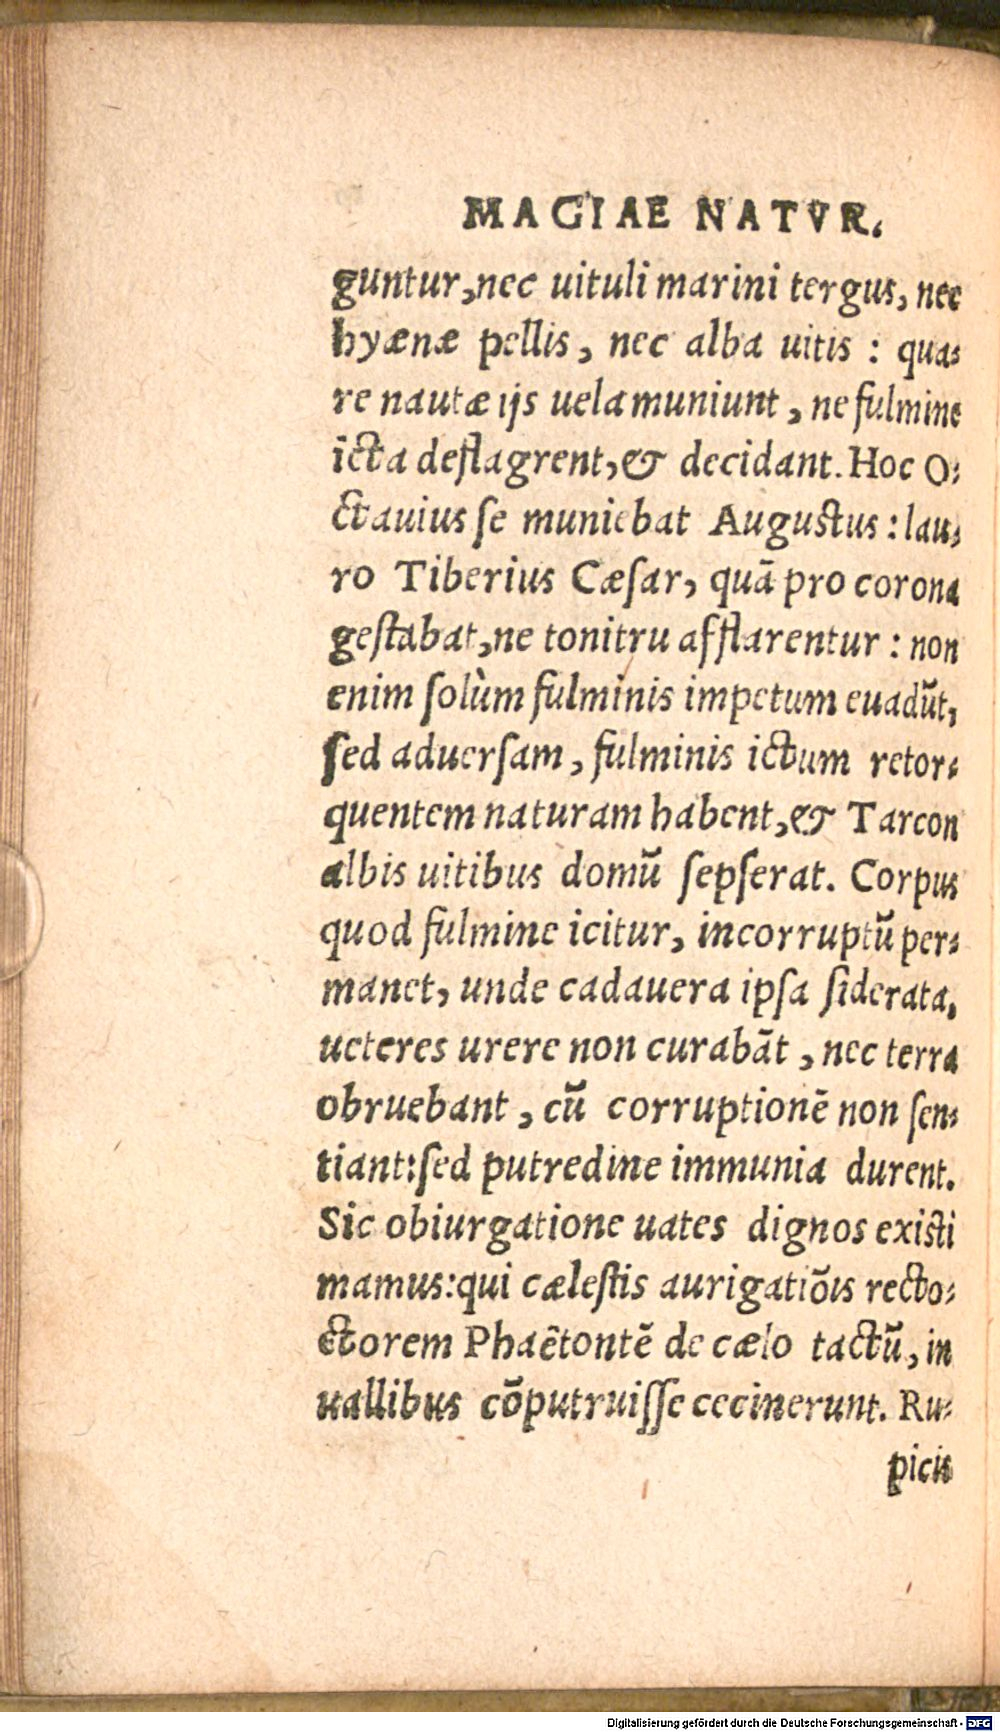 MAGIAE NATVR.
guntur, nec uituli marini tergus, nec
hyænæ pellis, nec alba uitis : qua⸗
re nautæ ijs uela muniunt, ne fulmine
icta deflagrent, & decidant. Hoc O⸗
ctauius se muniebat Augustus : lau⸗
ro Tiberius Cæsar, quã pro corona
gestabat, ne tonitru afflarentur : non
enim solùm fulminis impetum euadũt,
sed aduersam, fulminis ictum retor⸗
quentem naturam habent, & Tarcon
albis uitibus domũ sepserat. Corpus
quod fulmine icitur, incorruptũ per⸗
manet, unde cadauera ipsa siderata,
ueteres urere non curabãt, nec terra
obruebant, cũ corruptionẽ non sen⸗
tiant: sed putredine immunia durent.
Sic obiurgatione uates dignos existi
mamus: qui cælestis aurigatiõis recto⸗
ctorem Phaẽtontẽ de cælo tactũ, in
uallibus cõputruisse cecinerunt. Ru⸗
picis
Digitalisierung gefördert durch die Deutsche Forschungsgemeinschaft - DFG